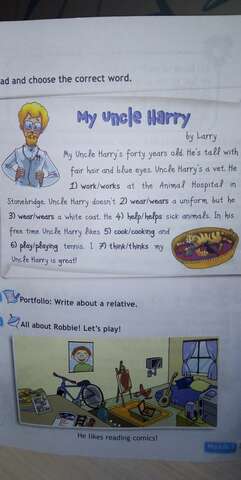 ad and choose the correct word.
My Uncle Harry
by Larry
My Uncle Harry's forty years old. He's tall with
fair hair and blue eyes. Uncle Harry's a vet. He
1) work/works at the Animal Hospital in
Stonebridge. Uncle Harry doesn't 2) wear/wears a uniform, but he
3) wear/wears a white coat. He 4) help/helps sick animals. In his
free time Uncle Harry likes 5) cook/cooking and
6) play/playing tennis. I 7) think/thinks my
Uncle Harry is great!
Portfolio: Write about a relative.
All about Robbie! Let's play!
He likes reading comics!